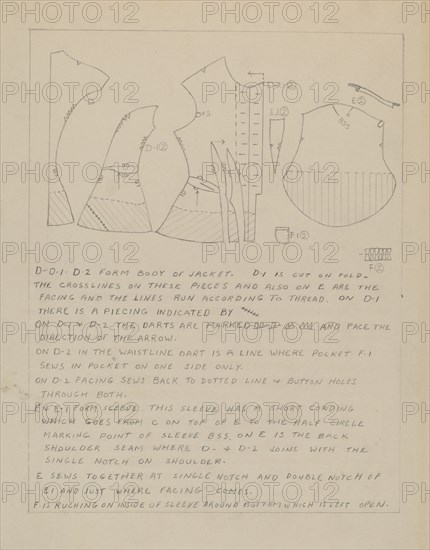 D-1②
BSS
E②
F1②
F②
D-D-1 D-2 FORM BODY OF JACKET. D-1 IS CUT ON FOLD-
THE CROSSLINES ON THESE PIECES AND ALSO ON E ARE THE
FACING AND THE LINES RUN ACCORDING TO THREAD. ON D-1
THERE IS A PIECING INDICATED BY
ON D-1 & D-2 THE DARTS ARE MARKED AND FACE THE
DIRECTION OF THE ARROW.
ON D-2 IN THE WAISTLINE DART IS A LINE WHERE POCKET F-1
SEWS IN POCKET ON ONE SIDE ONLY.
ON D-2 FACING SEWS BACK TO DOTTED LINE & BUTTON HOLES
THROUGH BOTH.
E E-1 FORM SLEEVE. THIS SLEEVE HAS A SHORT CORDING
WHICH GOES FROM C ON TOP OF E TO THE HALF CIRCLE
MARKING POINT OF SLEEVE BSS. ON E IS THE BACK
SHOULDER SEAM WHERE D- & D-2 JOINS WITH THE
SINGLE NOTCH ON SHOULDER.
E SEWS TOGETHER AT SINGLE NOTCH AND DOUBLE NOTCH OF
E1 AND JUST WHERE FACING COMES.
F IS RUCHING ON INSIDE OF SLEEVE AROUND BOTTOM WHICH IS LEFT OPEN.
PHOTO 12